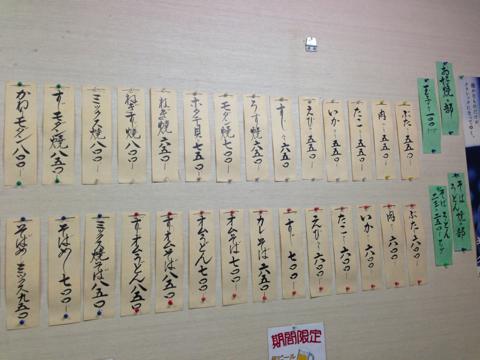 お好焼の部
ぶた 五五〇
肉 五五〇
たこ 五五〇
いか 五五〇
えび 五五〇
すじ 六五〇
うす焼 六五〇
モダン焼 七〇〇
ホタテ貝 七五〇
ねぎ焼 六五〇
ねぎすじ焼 八〇〇
ミックス焼 八〇〇
すじモダン焼 八五〇
かねモダン 八〇〇
そば焼の部
ぶた 六〇〇
肉 六〇〇
いか 六〇〇
たこ 六〇〇
えび 六〇〇
すじ 七〇〇
カレーそば 六五〇
オムそば 七〇〇
オムうどん 七〇〇
すじオムそば 八五〇
すじオムうどん 八五〇
ミックス焼そば 八五〇
そばめし 七〇〇
そばめしミックス 九五〇
期間限定